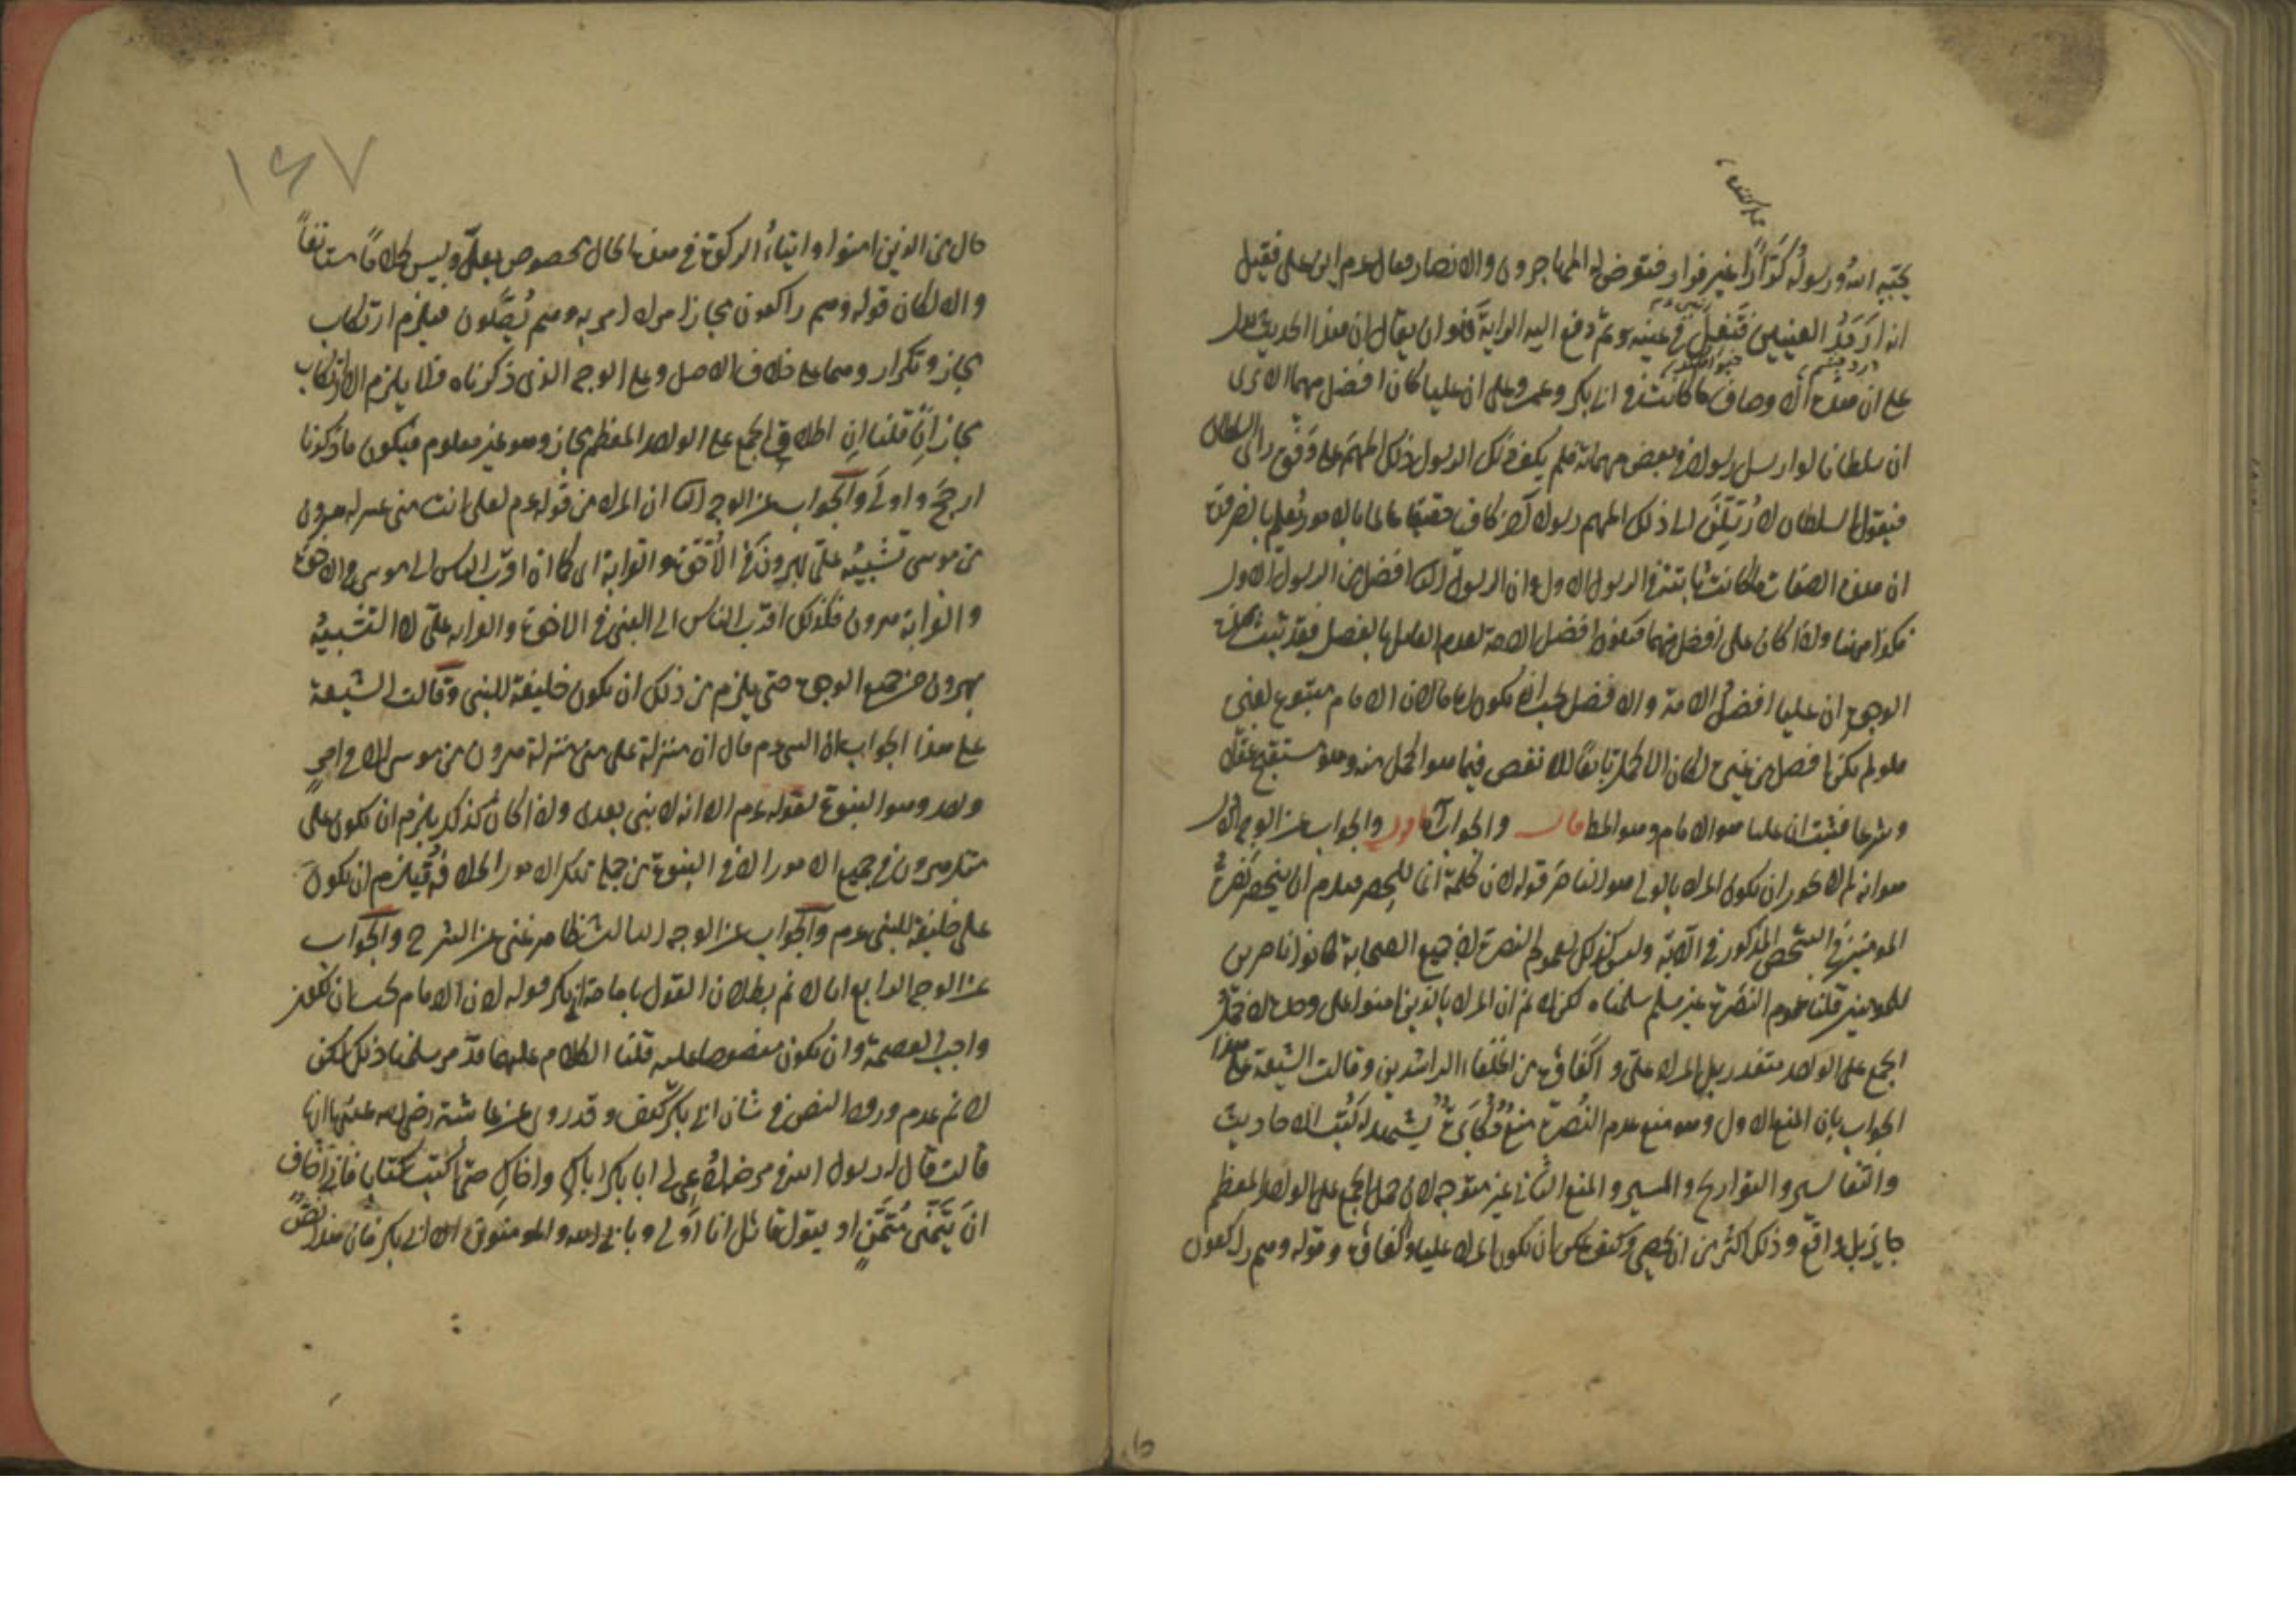 يحبه الله ورسوله كرارا غير فرار فتعرض له المهاجرون والانصار فقال عم اين على فقيل
انه ارمد العينين فتفل في عينه ثم دفع اليه الراية فلو ان يقال ان هذا الحديث يدل
على ان هذه الاوصاف ما كانت في ابي بكر وعمر وعلى ان عليا كان افضل منهما الا ترى
ان سلطانا لو ارسل رسولا في بعض مهماته فلم يكف ذلك الرسول ذلك المهم على وفق راى السلطان
فيقول السلطان لارسلن الى ذلك المهم رسولا كافيا عالما بالامور يعلم بالضرورة
ان هذه الصفات ما كانت ثابتة في الرسول الاول وان الرسول الثاني افضل من الرسول الاول
فكذا ههنا واذا كان على افضل منهما فيكون افضل الامة لعدم القايل بالفصل فقد ثبت بهذه
الوجوه ان عليا افضل الامة والافضل يجب ان يكون اماما لان الامام متبوع لغيره
فلو لم يكن افضل من غيره لكان الاكمل تابعا للانقص فيما هو اكمل منه وهو مستقبح عقلا
وشرعا فثبت ان عليا هو الامام وهو المط قال والجواب اقول والجواب عن الوجه الاول
هو انه لم لا يجوز ان يكون المراد بالولى هو الناصر قوله لان كلمة انما للحصر فيلزم ان ينحصر نصرة
المومنين في الشخص المذكور في الآية وليس كذلك لعموم النصرة لان جميع الصحابة كانوا ناصرين
للمومنين قلنا عموم النصرة غير مسلم سلمناه لكن لا نم ان المراد بالذين امنوا على وحده لان حمل
الجمع على الواحد متعذر بل المراد على واكفاؤه من الخلفاء الراشدين وقالت الشيعة على هذا
الجواب بان المنع الاول وهو منع عدم النصرة منع مكابرة يشهد له كتب الاحاديث
والتفاسير والتواريخ والسير والمنع الثاني غير متوجه لان حمل الجمع على الواحد المعظم
جايز بل واقع وذلك اكثر من ان يحصى وكيف يمكن ان يكون المراد عليا واكفاؤه وقوله وهم راكعون
حال من الذين امنوا وايتاء الزكوة في هذه الحال مخصوص بعلى وليس كلاما مستانفا
والا لكان قوله وهم راكعون مجازا مرادا به وهم يصلون فيلزم ارتكاب
مجاز وتكرار وهما على خلاف الاصل وعلى الوجه الذى ذكرناه فلا يلزم الا ارتكاب
مجاز قلنا ان اطلاق الجمع على الواحد المعظم مجاز وهو غير معلوم فيكون ما ذكرنا
ارجح واولى والجواب عن الوجه الثاني ان المراد من قوله عم لعلى انت منى بمنزلة هرون
من موسى تشبيه على بهرون في الاخوة والقرابة اى كما ان اقرب الناس الى موسى في الاخوة
والقرابة هرون فكذلك اقرب الناس الى النبي في الاخوة والقرابه على لا التشبيه
بهرون من جميع الوجوه حتى يلزم من ذلك ان يكون خليفة للنبى وقالت الشيعة
على هذا الجواب ان النبي عم قال ان منزلة على منى منزلة هرون من موسى الا في امر
واحد وهو النبوة لقوله عم الا انه لا نبى بعدى واذا كان كذلك يلزم ان يكون على
مثل هرون في جميع الامور الا في النبوة ومن جملة تلك الامور الخلافة فيلزم ان يكون
على خليفة للنبى عم والجواب عن الوجه الثالث ظاهر غنى عن الشرح والجواب
عن الوجه الرابع انا لا نم بطلان القول بامامة ابي بكر قوله لان الامام يجب ان يكون
واجب العصمة وان يكون منصوصا عليه قلنا الكلام عليهما قد مر سلمنا ذلك لكن
لا نم عدم ورود النص في شان ابي بكر كيف وقد روى عن عائشة رضى الله عنها انها
قالت قال لى رسول الله في مرضه ادعى لى ابا بكر اباك واخاك حتى اكتب كتابا فانى اخاف
ان يتمنى متمن او يقول قائل انا اولى ويابى الله والمومنون الا ابا بكر فان هذا نص